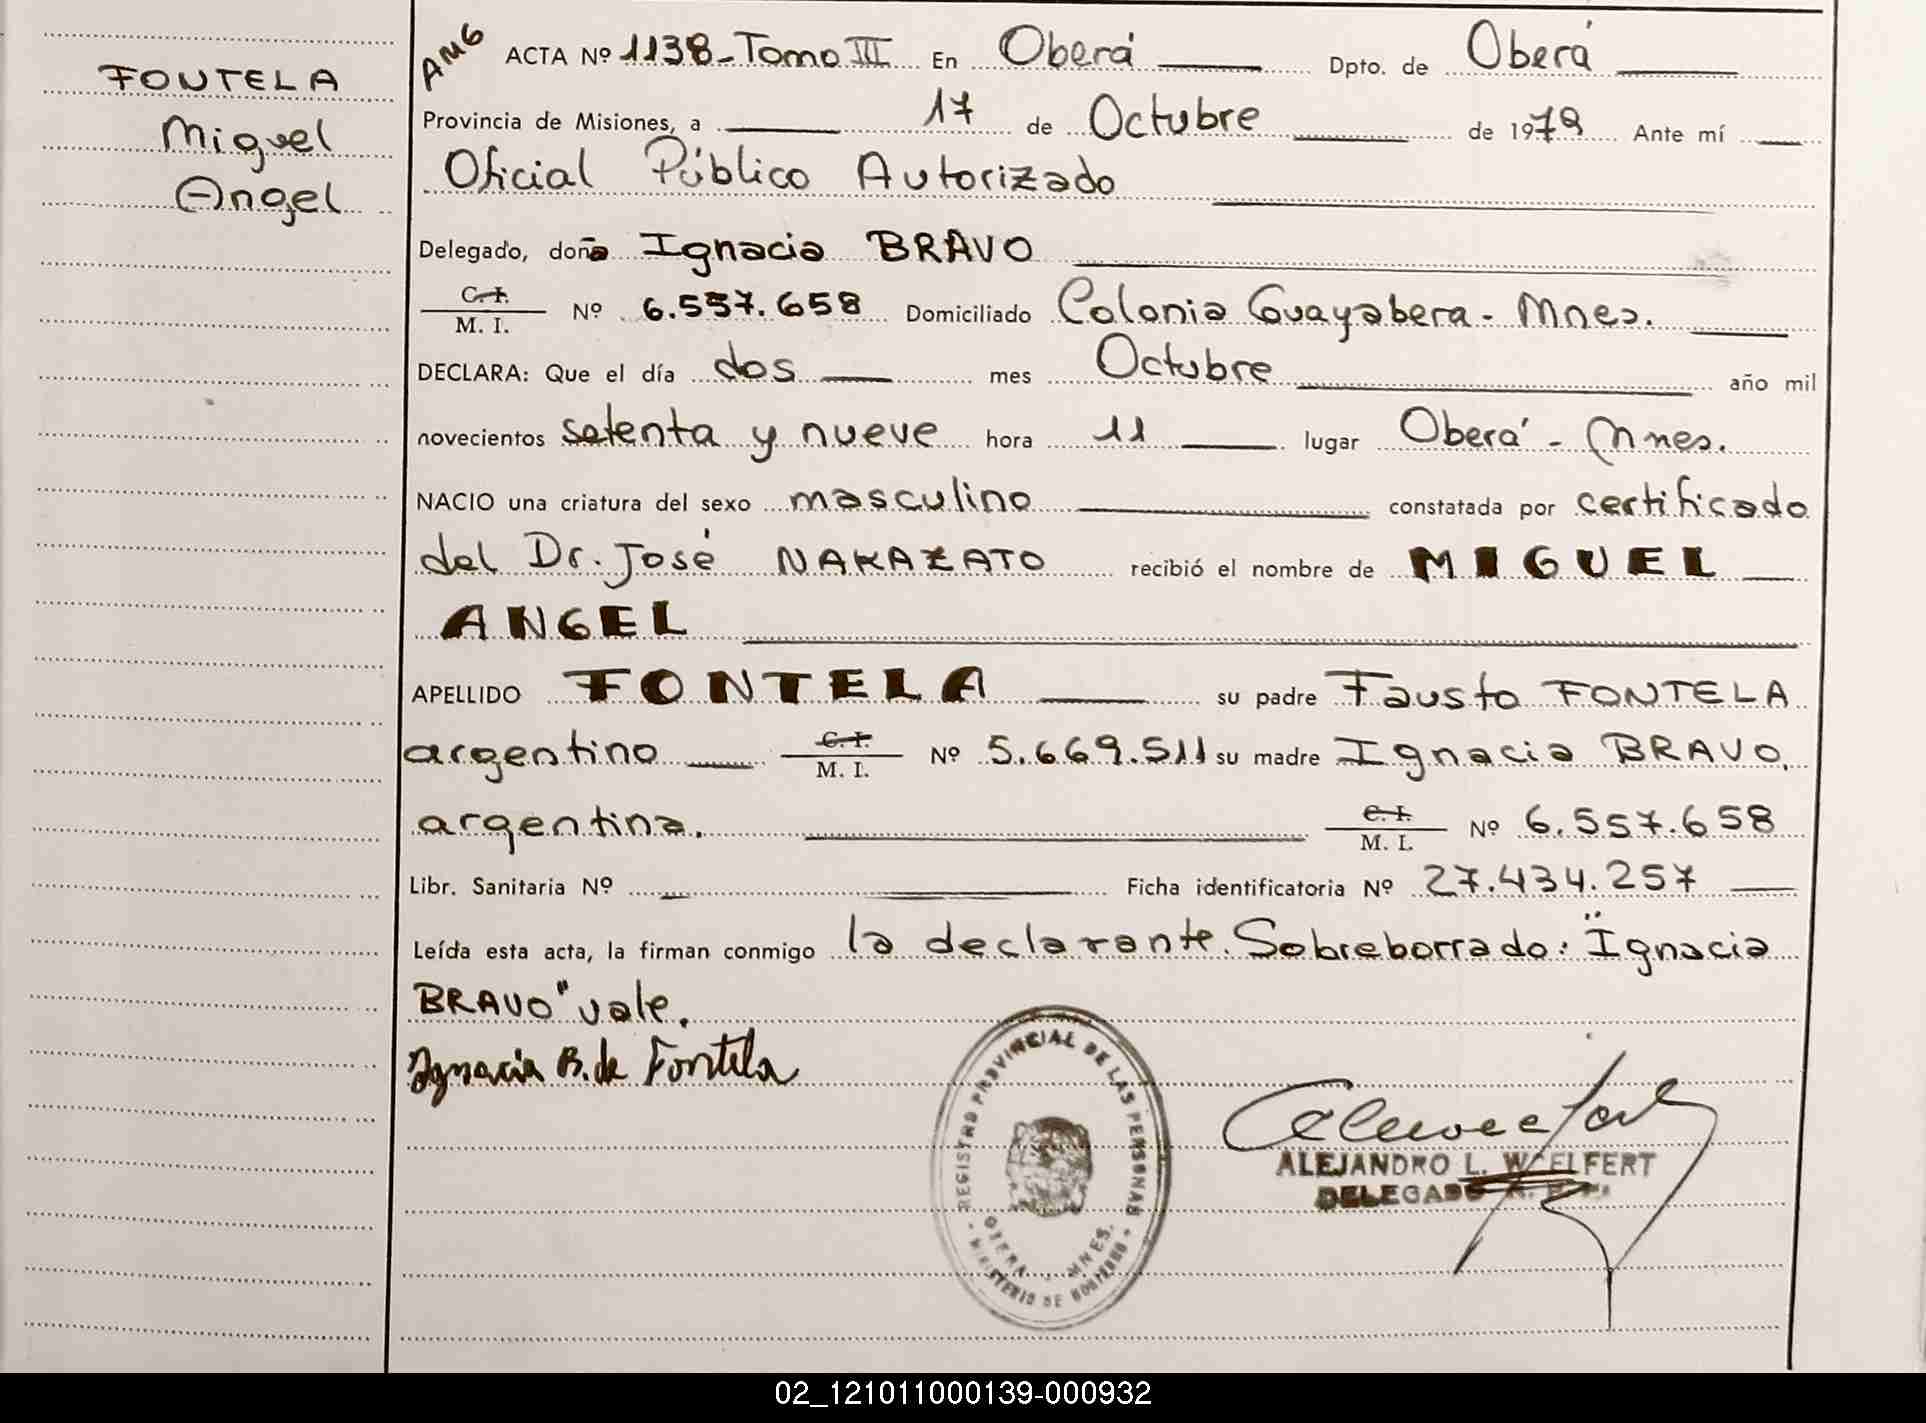 FONTELA
Miguel
Angel
AMG ACTA Nº 1138-Tomo III En Oberá Dpto. de Oberá
Provincia de Misiones, a 17 de Octubre de 1979 Ante mí
Oficial Público Autorizado
Delegado, doña Ignacia BRAVO
C. I.
M. I. Nº 6.557.658 Domiciliado Colonia Guayabera - Mnes.
DECLARA: Que el día dos mes Octubre año mil
novecientos setenta y nueve hora 11 lugar Oberá - Mnes.
NACIO una criatura del sexo masculino constatada por certificado
del Dr. José NAKAZATO recibió el nombre de MIGUEL
ANGEL
APELLIDO FONTELA su padre Fausto FONTELA
argentino C. I. M. I. Nº 5.669.511 su madre Ignacia BRAVO,
argentina. C. I. M. I. Nº 6.557.658
Libr. Sanitaria Nº Ficha identificatoria Nº 27.434.257
Leída esta acta, la firman conmigo la declarante. Sobreborrado: "Ignacia
BRAVO" vale.
Ignacia B. de Fontela
REGISTRO PROVINCIAL DE LAS PERSONAS
OBERA - MNES.
- MINISTERIO DE GOBIERNO -
ALEJANDRO L. WOELFERT
DELEGADO
02_121011000139-000932